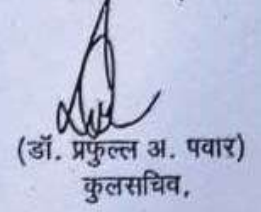 (डॉ. प्रफुल्ल अ. पवार)
कुलसचिव,